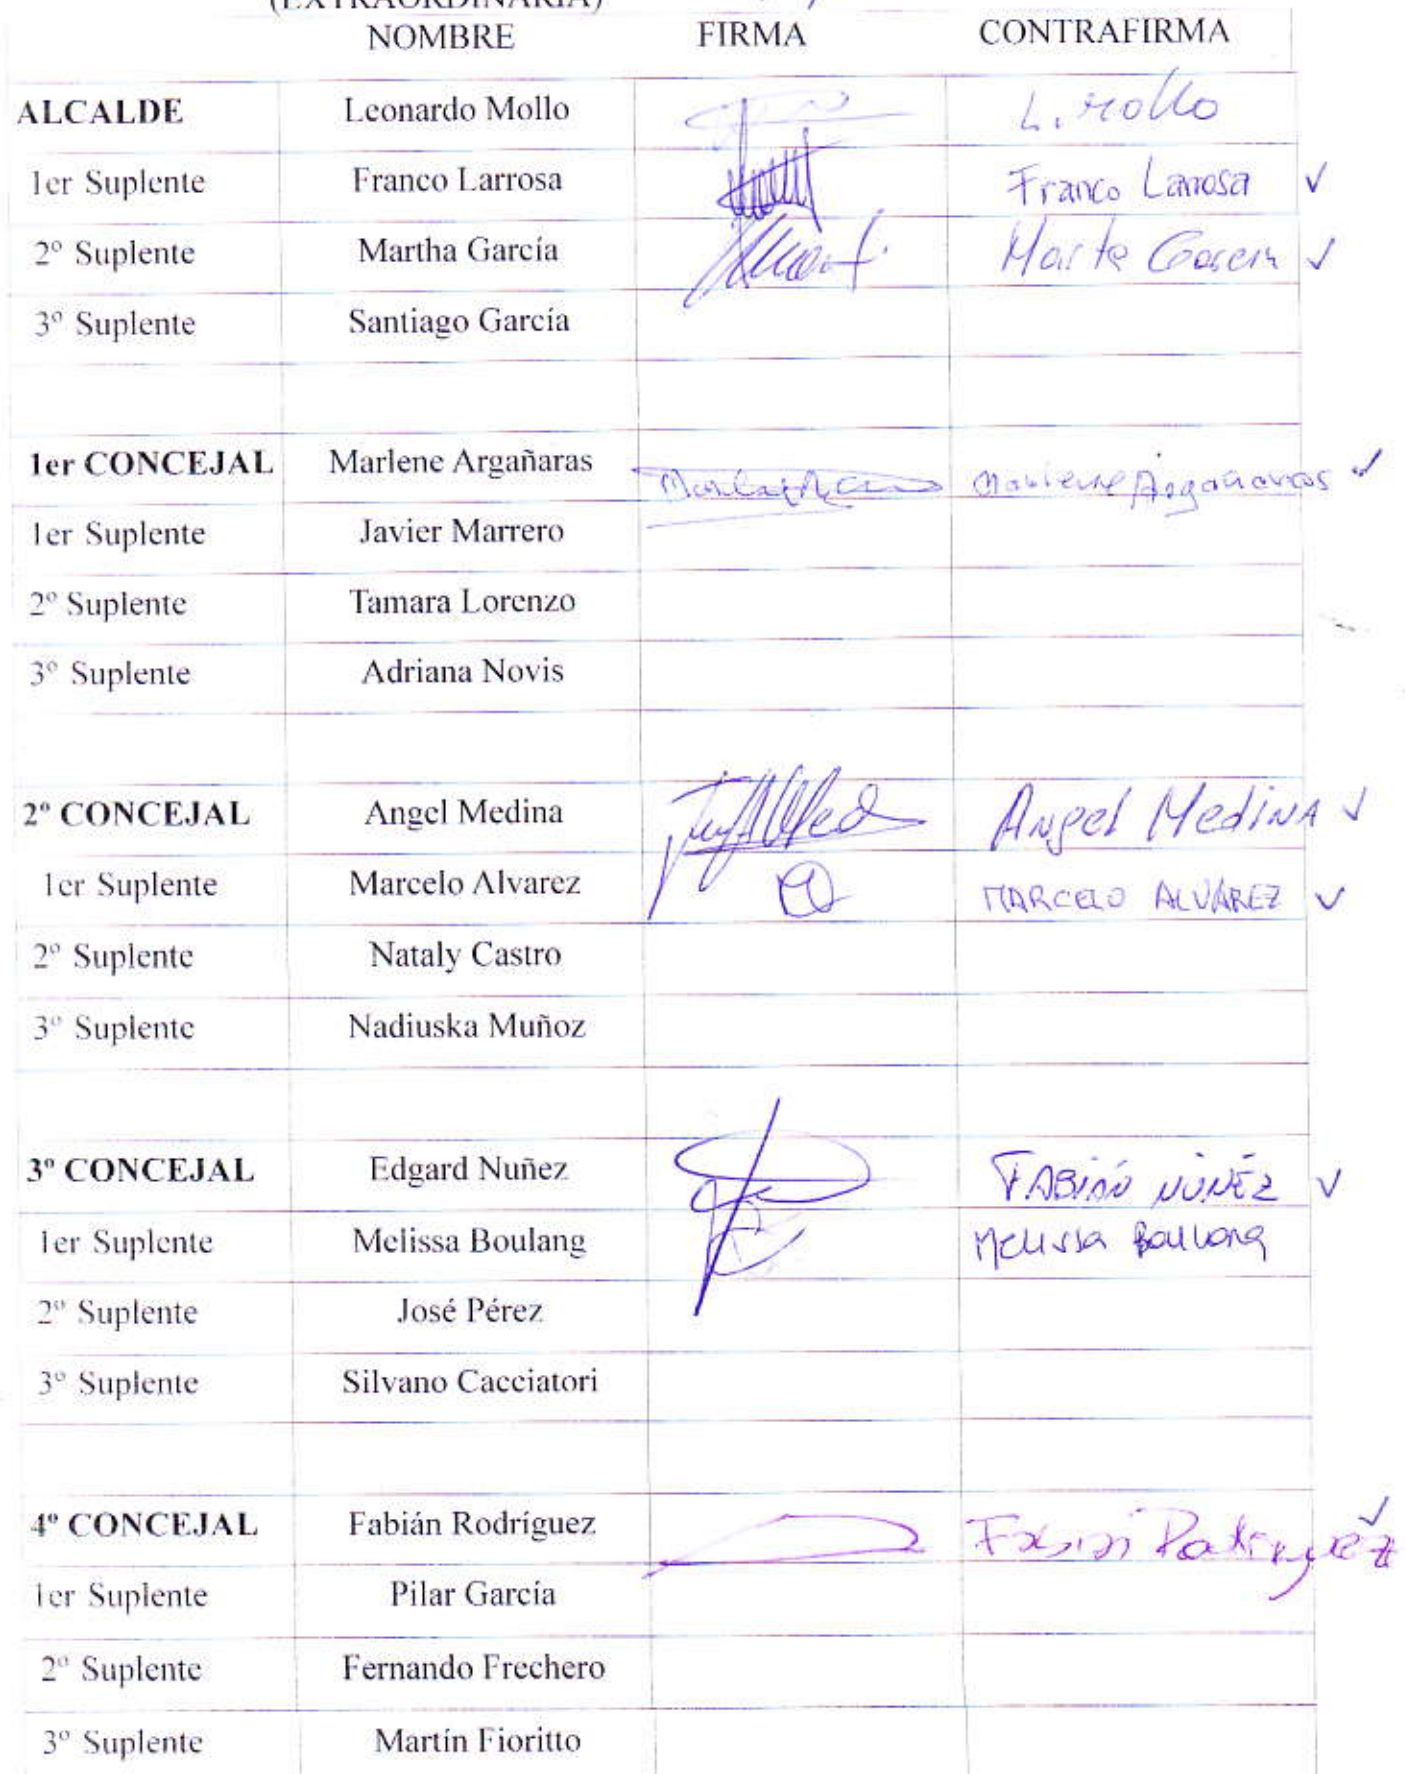 (EXTRAORDINARIA)
NOMBRE FIRMA CONTRAFIRMA
ALCALDE Leonardo Mollo L. Mollo
1er Suplente Franco Larrosa Franco Larrosa ✓
2º Suplente Martha García Marta García ✓
3º Suplente Santiago García
1er CONCEJAL Marlene Argañaras Marlene Argañaras ✓
1er Suplente Javier Marrero
2º Suplente Tamara Lorenzo
3º Suplente Adriana Novis
2º CONCEJAL Angel Medina Angel Medina ✓
1er Suplente Marcelo Alvarez MARCELO ALVÁREZ ✓
2º Suplente Nataly Castro
3º Suplente Nadiuska Muñoz
3º CONCEJAL Edgard Nuñez FABIÁN NÚÑEZ ✓
1er Suplente Melissa Boulang Melissa Boulang
2º Suplente José Pérez
3º Suplente Silvano Cacciatori
4º CONCEJAL Fabián Rodríguez Fabián Rodríguez ✓
1er Suplente Pilar García
2º Suplente Fernando Frechero
3º Suplente Martín Fioritto